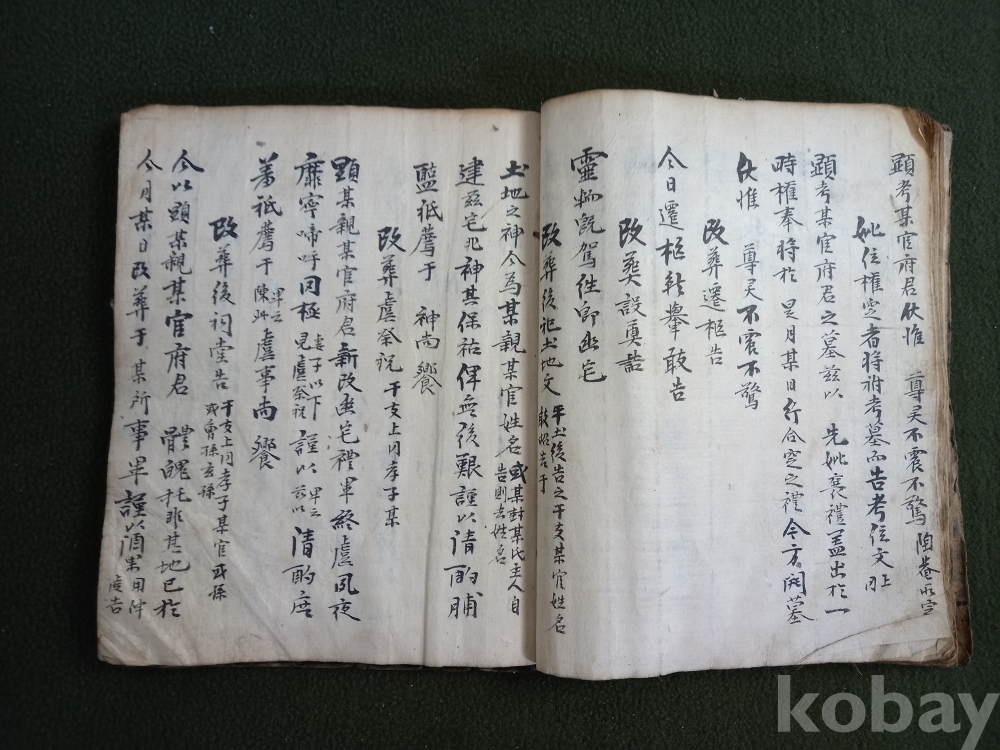 顯考某官府君伏惟 尊灵不震不驚 陶菴所定
妣位權窆者將祔考墓而告考位文 同上
顯考某官府君之墓玆以 先妣襄禮盖出於一
時權奉將於是月某日行合窆之禮今方開墓
伏惟 尊灵不震不驚
改葬遷柩告
今日遷柩就擧敢告
改葬設奠誥
靈輀旣駕徃卽幽宅
改葬後祀土地文 平土後告之干支某官姓名敢昭告于
土地之神今為某親某官姓名 或某封某氏主人自告則去姓名
建玆宅兆神其保祐俾無後艱謹以清酌脯
醢祗薦于 神尚饗
改葬虞祭祝 干支上同孝子某
顯某親某官府君新改幽宅禮畢終虞夙夜
靡寧啼呼罔極 妻子以下見虞祭祝 謹以 畢云玆以 清酌庶
羞祗薦于 畢云陳此 虞事尚 饗
改葬後祠堂告 干支上同孝子某官或孫或曾孫玄孫
今以顯某親某官府君 體魄托非其地已於
今月某日改葬于某所事畢謹以酒果用伸虔告
kobay